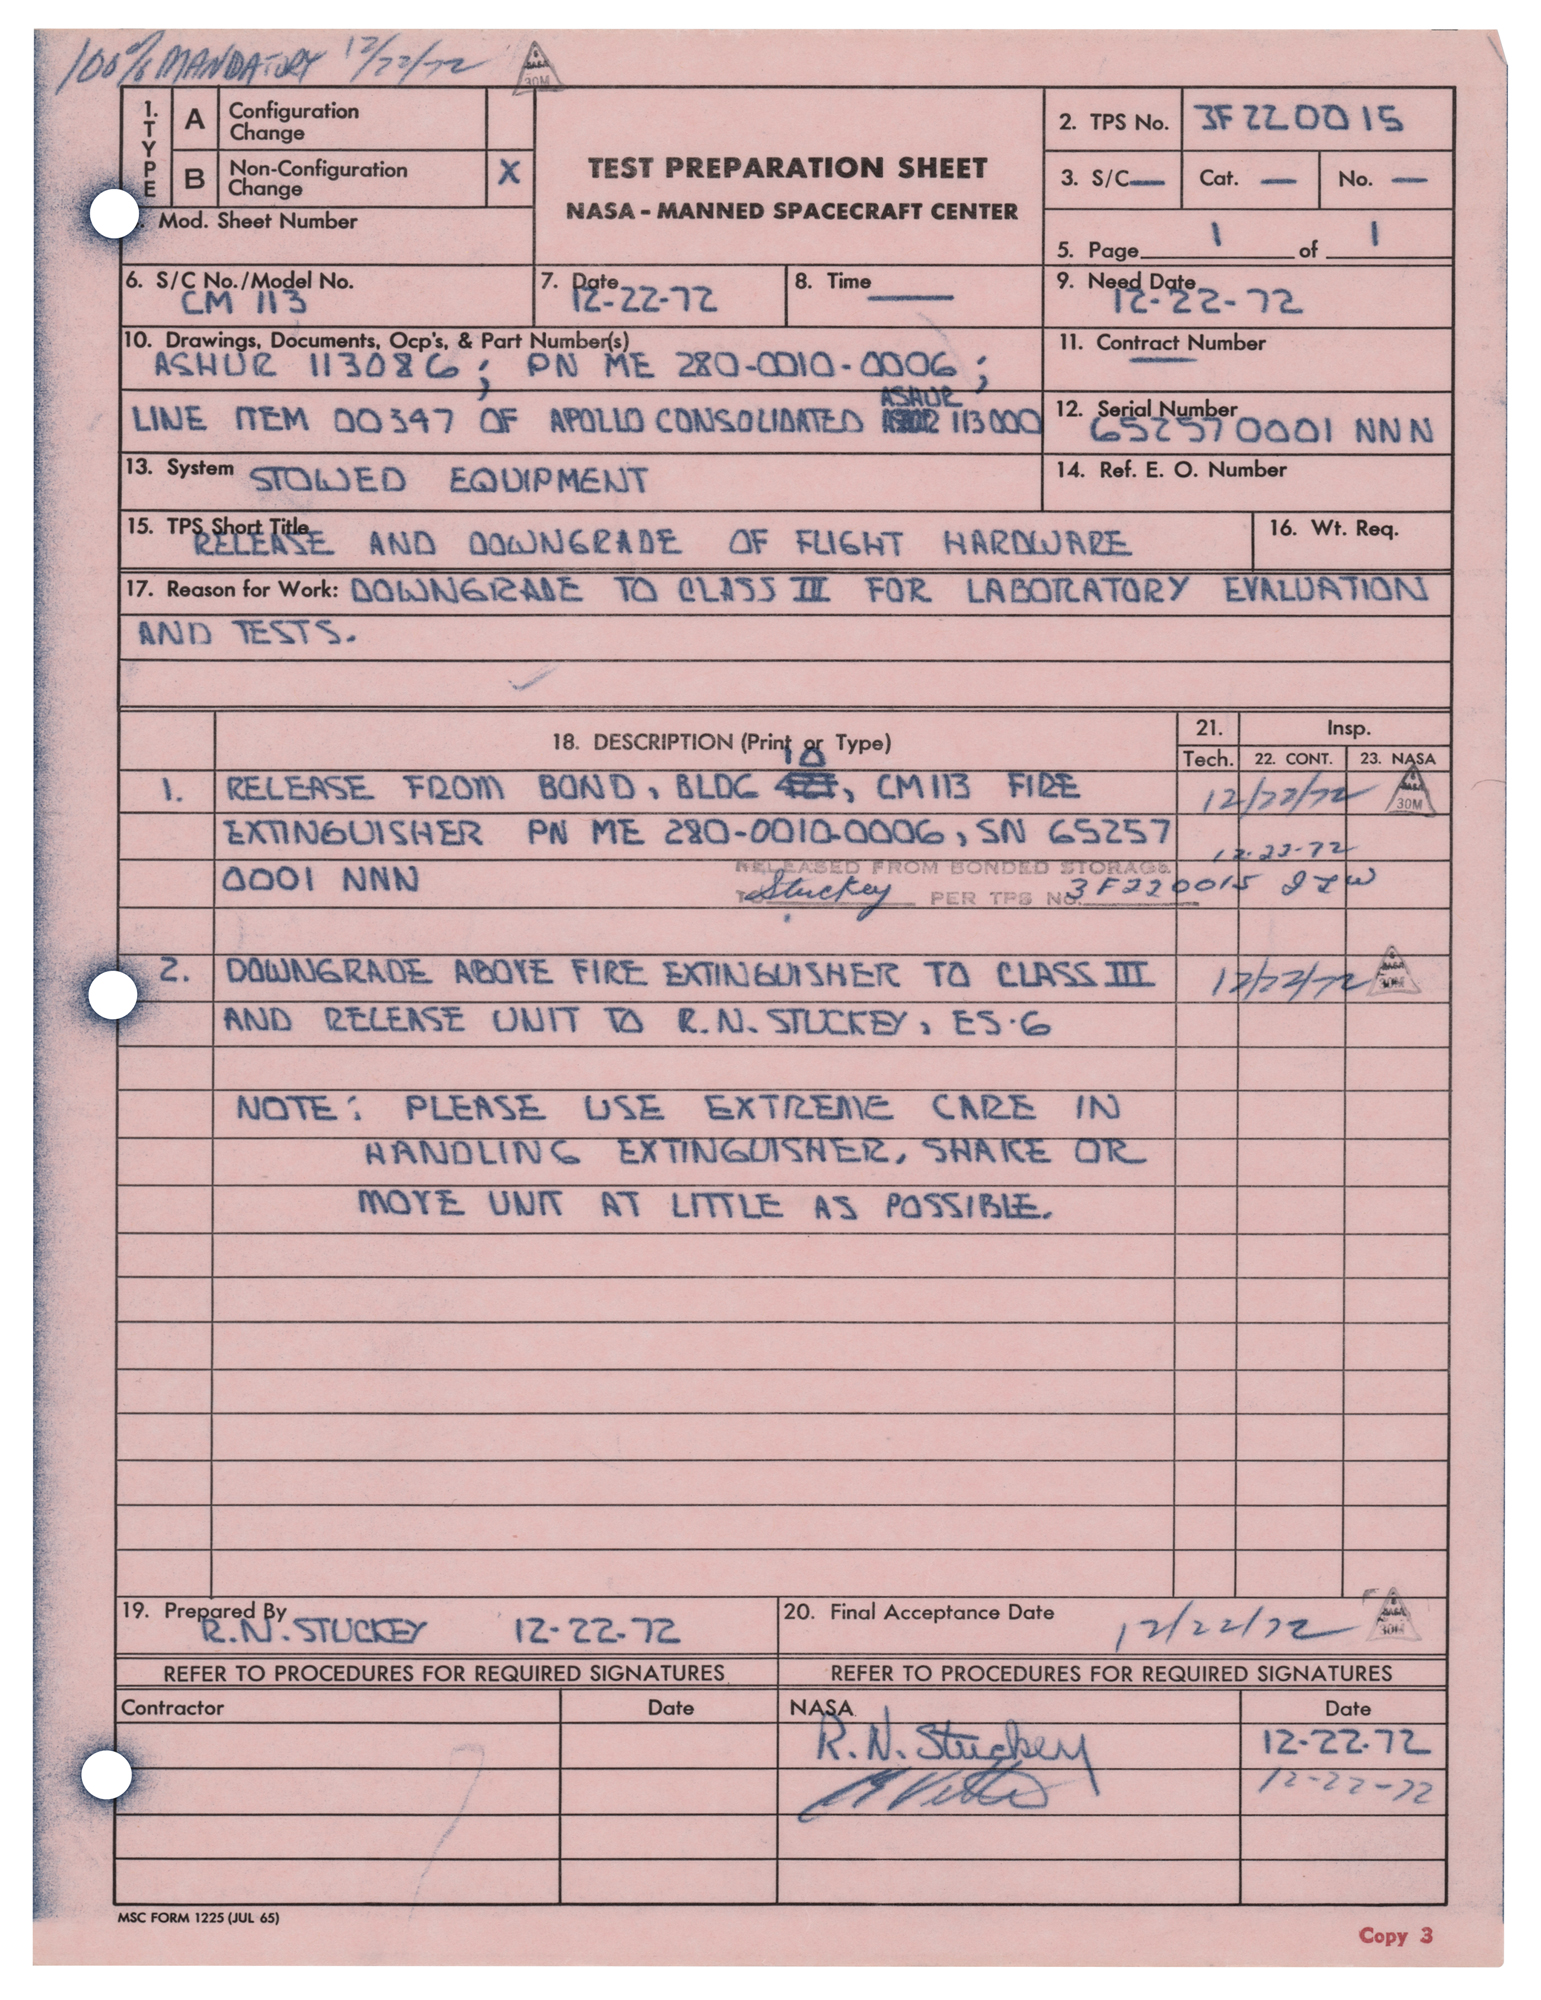 100% MANDATORY 12/22/72
NASA
30M
1. TYPE
A Configuration Change
B Non-Configuration Change X
TEST PREPARATION SHEET
NASA - MANNED SPACECRAFT CENTER
2. TPS No. 3F220015
3. S/C — Cat. — No. —
Mod. Sheet Number
5. Page 1 of 1
6. S/C No./Model No.
CM 113
7. Date
12-22-72
8. Time —
9. Need Date
12-22-72
10. Drawings, Documents, Ocp's, & Part Number(s)
ASHUR 113086; PN ME 280-0010-0006;
ASHUR
LINE ITEM 00347 OF APOLLO CONSOLIDATED 113000
11. Contract Number
—
12. Serial Number
652570001 NNN
13. System STOWED EQUIPMENT
14. Ref. E. O. Number
15. TPS Short Title
RELEASE AND DOWNGRADE OF FLIGHT HARDWARE
16. Wt. Req.
17. Reason for Work: DOWNGRADE TO CLASS III FOR LABORATORY EVALUATION
AND TESTS.
18. DESCRIPTION (Print or Type)
21. Tech.
Insp.
22. CONT. 23. NASA
10
1. RELEASE FROM BOND, BLDG 427, CM113 FIRE 12/22/72 NASA 30M
EXTINGUISHER PN ME 280-0010-0006, SN 65257
12-22-72
0001 NNN
RELEASED FROM BONDED STORAGE
TO Stuckey PER TPS NO. 3F220015 JLW
2. DOWNGRADE ABOVE FIRE EXTINGUISHER TO CLASS III 12/22/72 NASA 30M
AND RELEASE UNIT TO R.N. STUCKEY, ES-6
NOTE: PLEASE USE EXTREME CARE IN
HANDLING EXTINGUISHER, SHAKE OR
MOVE UNIT AT LITTLE AS POSSIBLE.
19. Prepared By
R.N. STUCKEY 12-22-72
20. Final Acceptance Date 12/22/72 NASA 30M
REFER TO PROCEDURES FOR REQUIRED SIGNATURES
REFER TO PROCEDURES FOR REQUIRED SIGNATURES
Contractor Date NASA Date
R.N. Stuckey 12-22-72
12-22-72
MSC FORM 1225 (JUL 65)
Copy 3